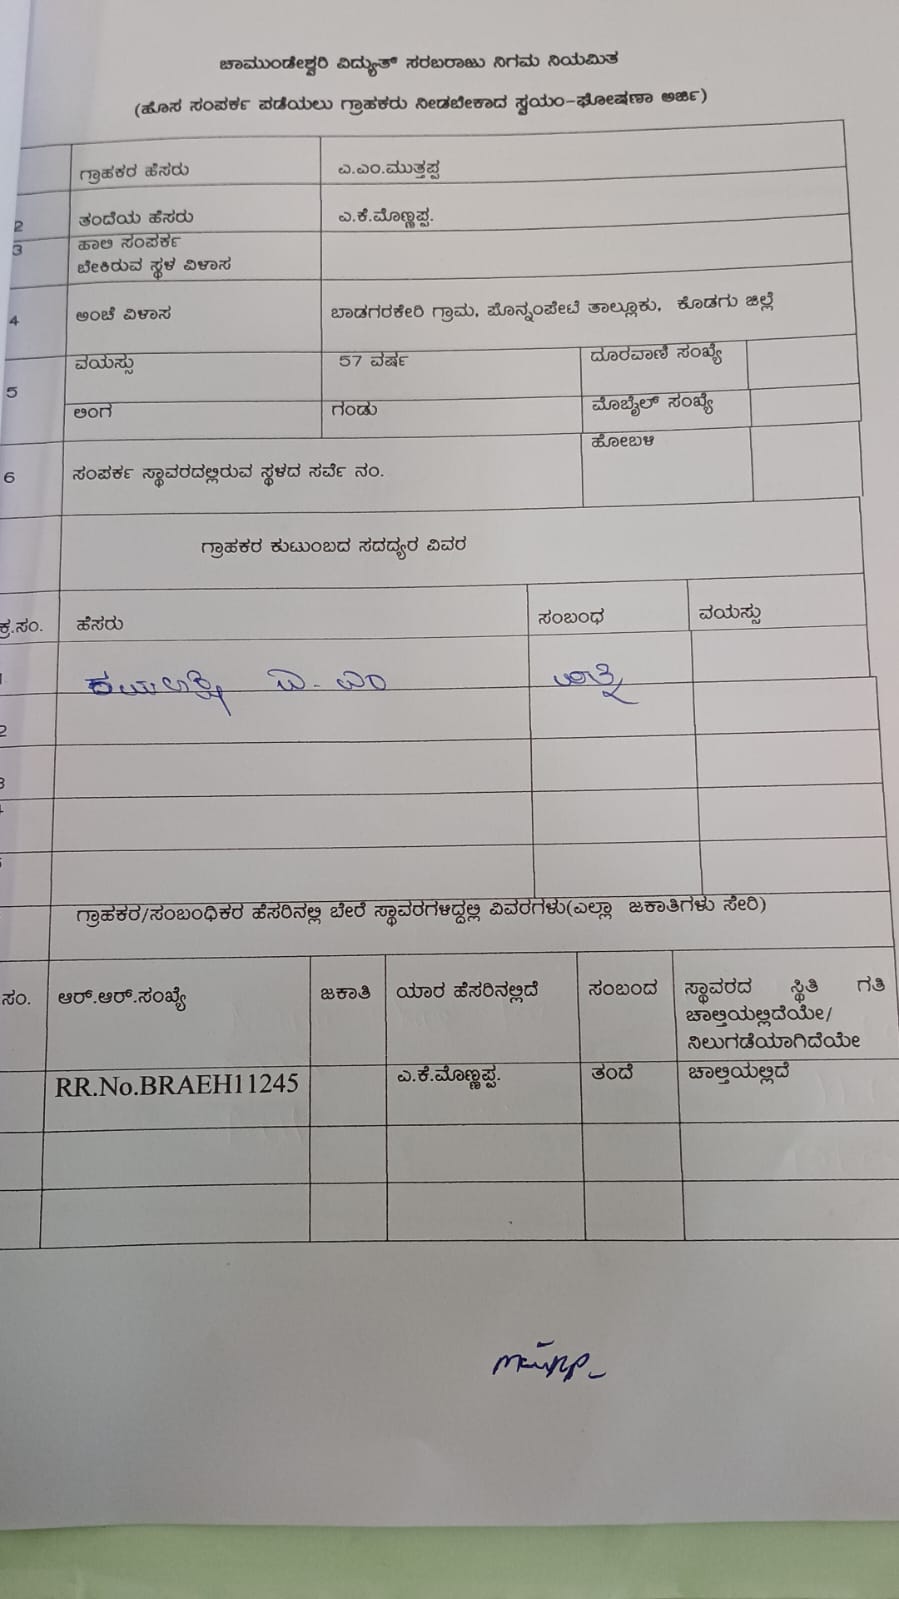 ಚಾಮುಂಡೇಶ್ವರಿ ವಿದ್ಯುತ್ ಸರಬರಾಜು ನಿಗಮ ನಿಯಮಿತ
(ಹೊಸ ಸಂಪರ್ಕ ಪಡೆಯಲು ಗ್ರಾಹಕರು ನೀಡಬೇಕಾದ ಸ್ವಯಂ-ಘೋಷಣಾ ಅರ್ಜಿ)
ಗ್ರಾಹಕರ ಹೆಸರು ಎ.ಎಂ.ಮುತ್ತಪ್ಪ
2 ತಂದೆಯ ಹೆಸರು ಎ.ಕೆ.ಮೊಣ್ಣಪ್ಪ.
3 ಹಾಲಿ ಸಂಪರ್ಕ
ಬೇಕಿರುವ ಸ್ಥಳ ವಿಳಾಸ
4 ಅಂಚೆ ವಿಳಾಸ ಬಾಡಗರಕೇರಿ ಗ್ರಾಮ, ಪೊನ್ನಂಪೇಟೆ ತಾಲ್ಲೂಕು, ಕೊಡಗು ಜಿಲ್ಲೆ
5 ವಯಸ್ಸು 57 ವರ್ಷ ದೂರವಾಣಿ ಸಂಖ್ಯೆ
ಲಿಂಗ ಗಂಡು ಮೊಬೈಲ್ ಸಂಖ್ಯೆ
6 ಸಂಪರ್ಕ ಸ್ಥಾವರದಲ್ಲಿರುವ ಸ್ಥಳದ ಸರ್ವೆ ನಂ. ಹೋಬಳಿ
ಗ್ರಾಹಕರ ಕುಟುಂಬದ ಸದದ್ಯರ ವಿವರ
ಕ್ರ.ಸಂ. ಹೆಸರು ಸಂಬಂಧ ವಯಸ್ಸು
1 ಎ. ಎಂ ಪತ್ನಿ
2
3
ಗ್ರಾಹಕರ/ಸಂಬಂಧಿಕರ ಹೆಸರಿನಲ್ಲಿ ಬೇರೆ ಸ್ಥಾವರಗಳಿದ್ದಲ್ಲಿ ವಿವರಗಳು(ಎಲ್ಲಾ ಜಕಾತಿಗಳು ಸೇರಿ)
ಸಂ. ಆರ್.ಆರ್.ಸಂಖ್ಯೆ ಜಕಾತಿ ಯಾರ ಹೆಸರಿನಲ್ಲಿದೆ ಸಂಬಂದ ಸ್ಥಾವರದ ಸ್ಥಿತಿ ಗತಿ
ಚಾಲ್ತಿಯಲ್ಲಿದೆಯೇ/
ನಿಲುಗಡೆಯಾಗಿದೆಯೇ
RR.No.BRAEH11245 ಎ.ಕೆ.ಮೊಣ್ಣಪ್ಪ. ತಂದೆ ಚಾಲ್ತಿಯಲ್ಲಿದೆ